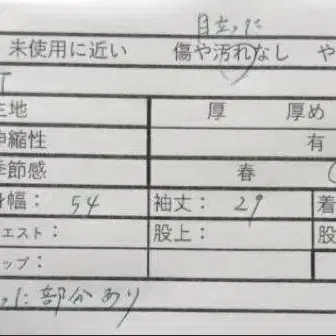 目立った
未使用に近い 傷や汚れなし や
T
生地 厚 厚め
伸縮性 有
季節感 春
身幅： 54 袖丈： 29 着
ウエスト： 股上： 股
ップ：
った部分あり